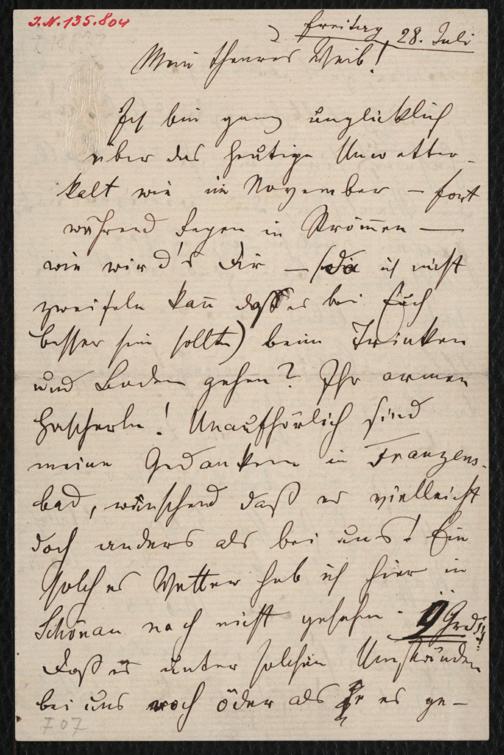 J.N. 135.804
Freitag 28. Juli
Mein theures Weib!
Ich bin ganz unglücklich
über das heutige Unwetter-
kalt wie im November – fort
während Regen in Strömen –
wie wird's Dir – (da ich nicht
zweifeln kann daß es bei Euch
besser sein sollte) beim Trinken
und Baden gehen? Ihr armen
Hascherln! Unaufhörlich sind
meine Gedanken in Franzens-
bad, wünschend daß es vielleicht
doch anders als bei uns! Ein
solches Wetter hab ich hier in
Schönau noch nicht gesehn. 9 Grd!!
Daß es unter solchen Umständen
bei uns noch öder als es ge-
I 07